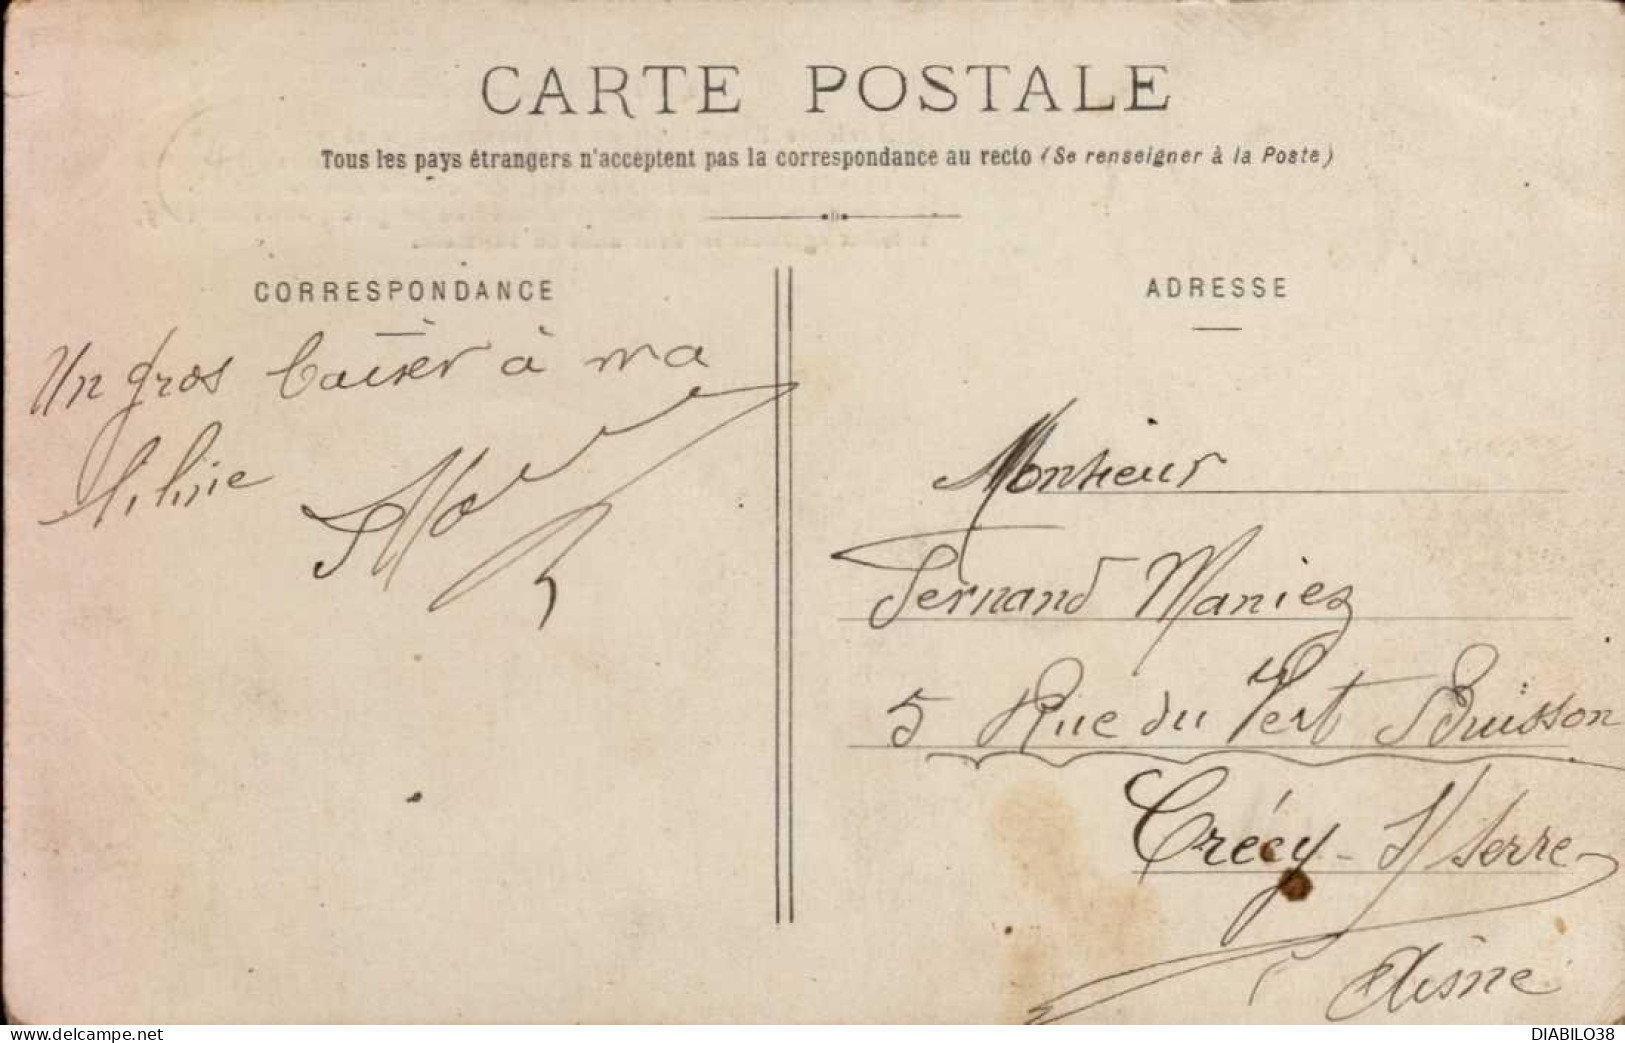 CARTE POSTALE
Tous les pays étrangers n'acceptent pas la correspondance au recto (Se renseigner à la Poste)
CORRESPONDANCE
ADRESSE
Un gros baiser à ma
Liline
Monsieur
Fernand Maniez
5 Rue du Vert Buisson
Crécy-S/Serre
Aisne
https://www.delcampe.net
DIABILO38